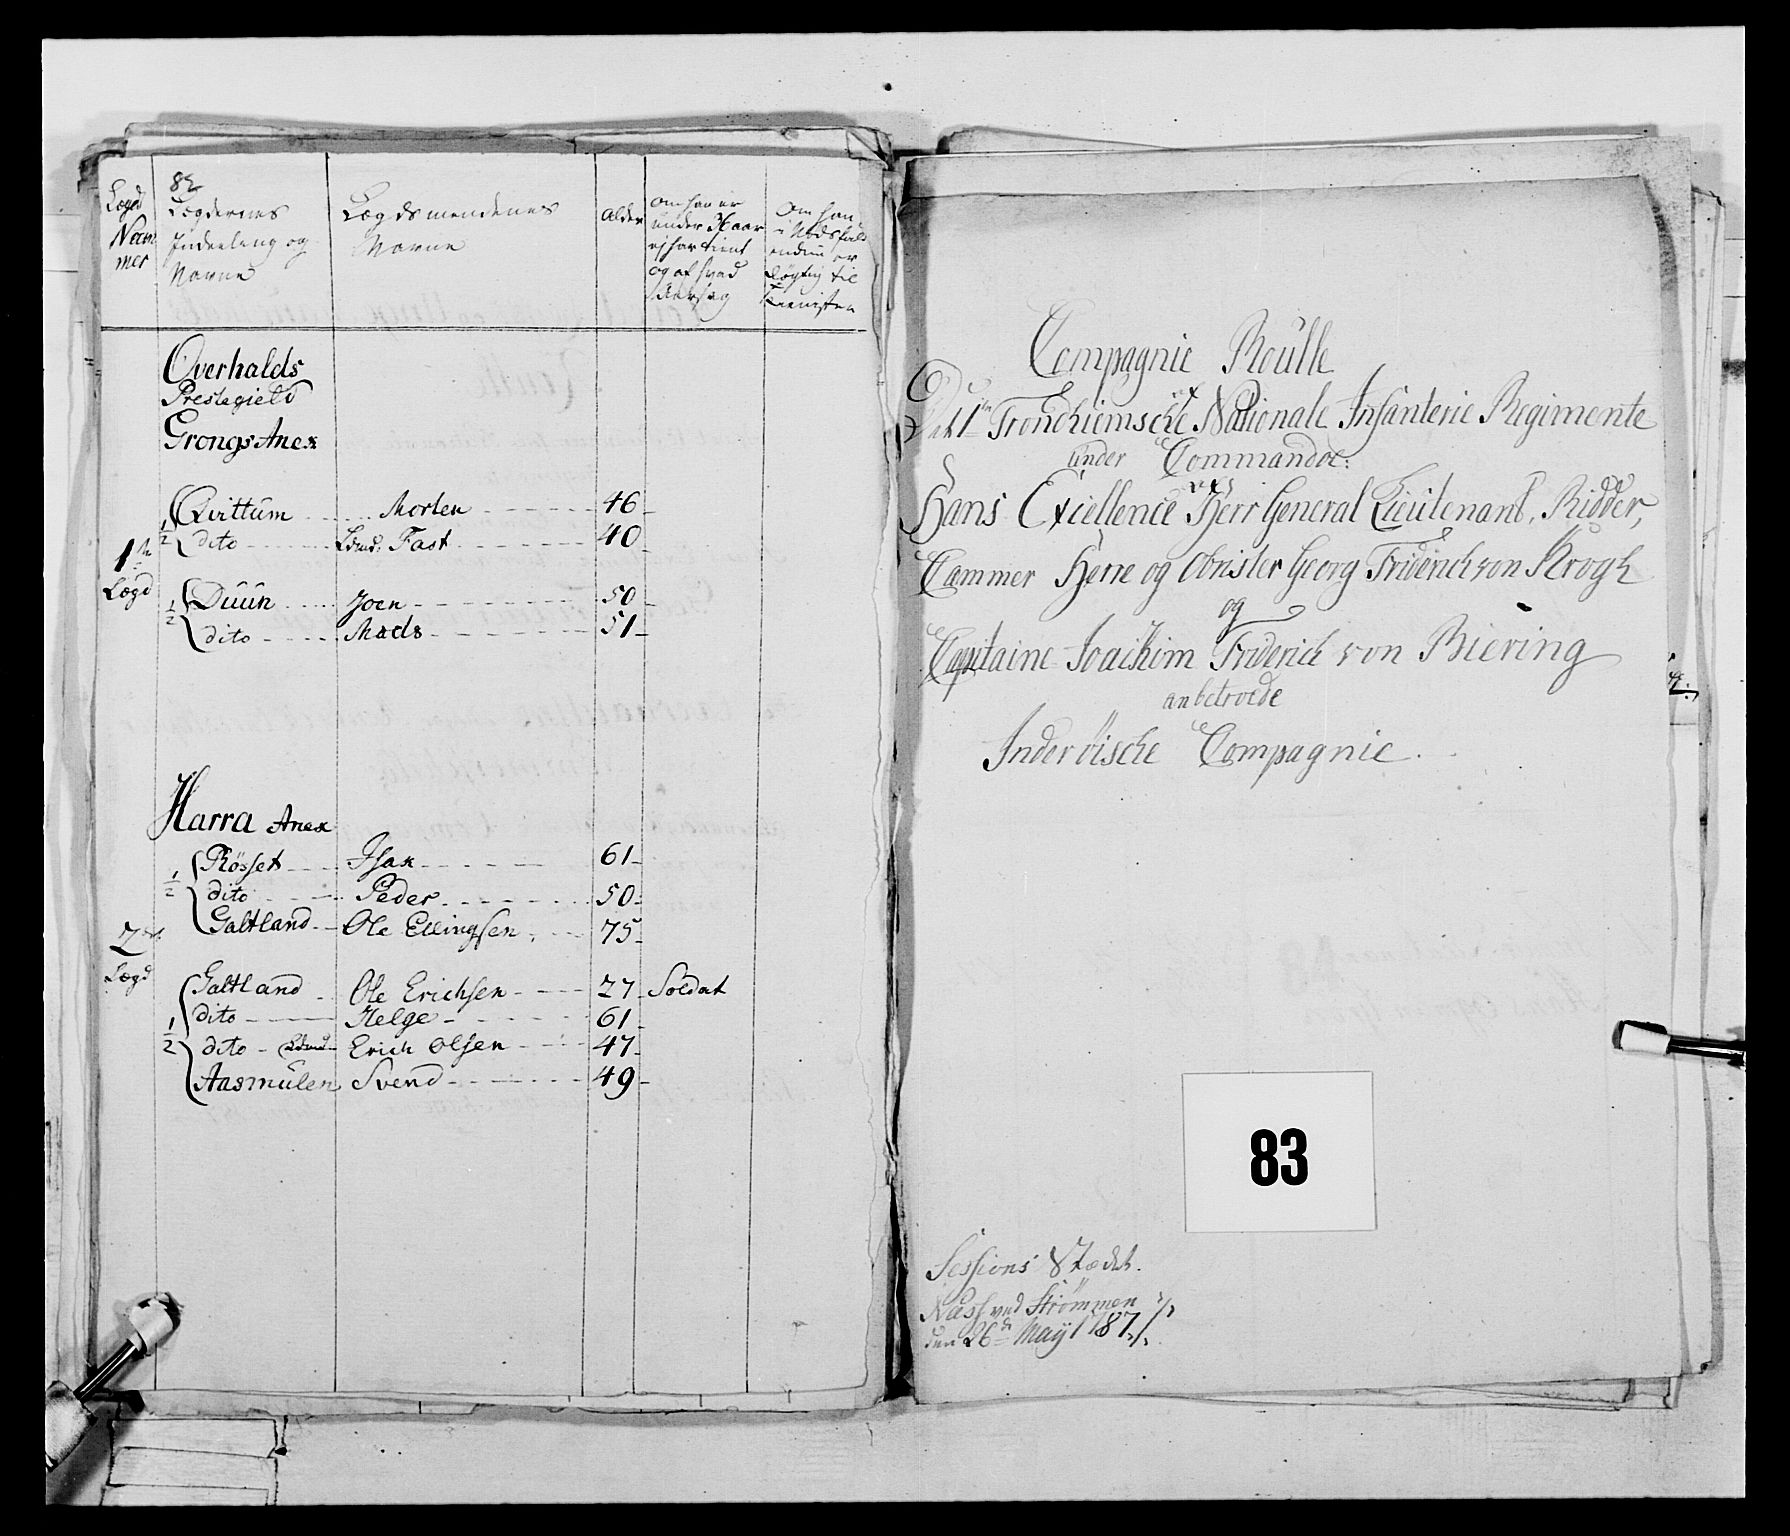 82
Lægd Num mer
Lægdernes Indeeling og Navne
Lægdsmendenes Navne
Alder
om han er under 36 aar ej har tient og af hvad Aarsag
Om han i Nødsfald endnu er døgtig til Tienisten
Overhalds
Prestegield
Grongs Anex
1te Lægd
1/2
Qvittum Morten 46
dito Ldmd. Fast 40
1/2
Duun Joen 50
dito Mads 51
Harra Anex
2den Lægd
1/2
Røsset Isak 61
dito Peder 50
Galtland Ole Ellingsen 75
1/2
Galtland Ole Erichsen 27 Soldat
dito Helge 61
dito Ldmd Erich Olsen 47
Aasmulen Svend 49
Compagnie Roulle
Det 1te Trondhiemsche Nationale Infanterie Regimente
under Commandoe:
Hans Excellence Herr General Lieutenant, Ridder,
Cammer Herre og Obrister Georg Friderich von Krogh
og
Capitaine Joachim Friderich von Biering
anbetroede
Inderöische Compagnie.
83
Sessions Stædet.
Næss ved Strömmen
den 26de Maij 1787